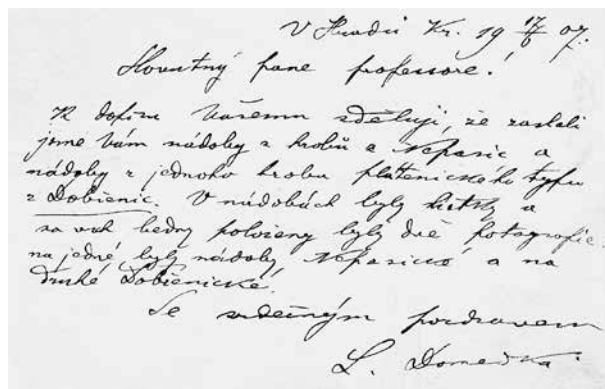 V Hradci Kr. 19 17/6 07.
Slovutný pane professore!
K dopisu Vašemu sděluji, že zaslali
jsme Vám nádoby z hrobů z Nepasic a
nádoby z jednoho hrobu platěnického typu
z Dobřenic. V nádobách byly lístky a
na vrch bedny položeny byly dvě fotografie.
na jedné byly nádoby Nepasické a na
druhé Dobřenické.
Se srdečným pozdravem
L. Domečka